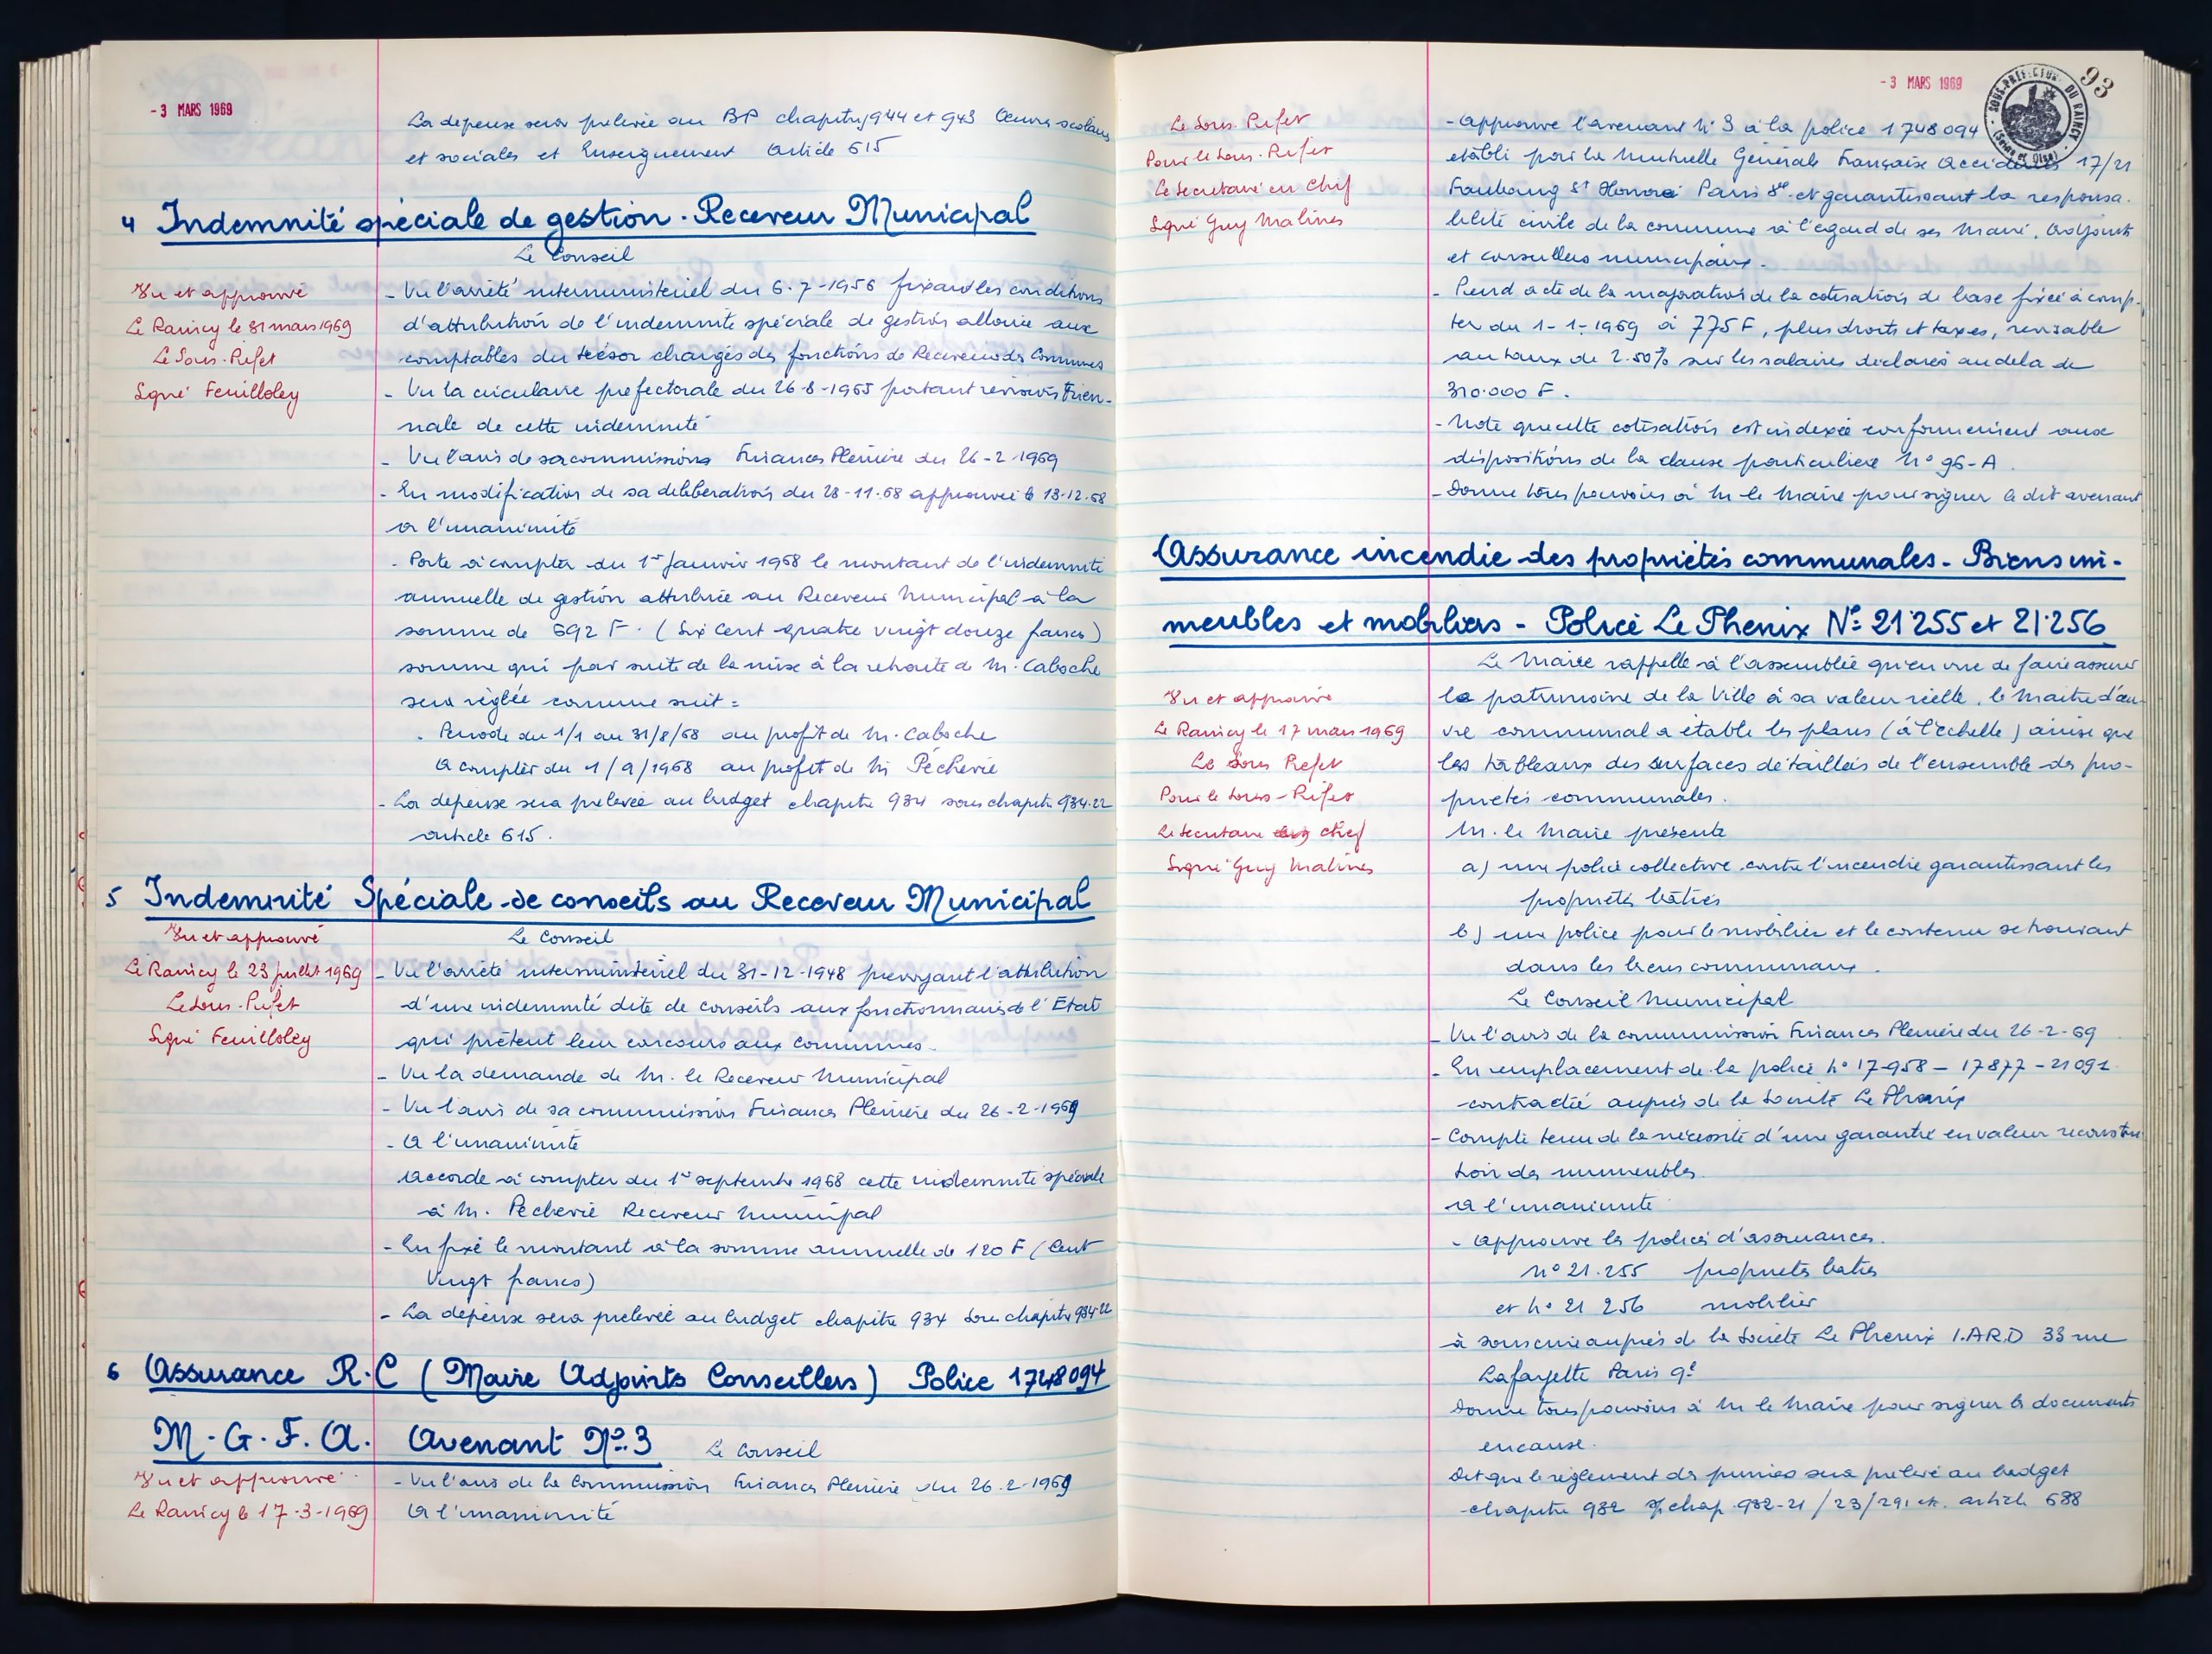 - 3 MARS 1969
La depense sera prelevée au BP chapitres 944 et 943 Oeuvres scolaires
et sociales et Enseignement Article 615
4 Indemnité spéciale de gestion. Receveur Municipal
Le Conseil
Vu et approuvé
Le Raincy le 31 mars 1969
Le Sous-Préfet
Signé Feuilloley
- Vu l'arrêté interministériel du 6-7-1956 fixant les conditions
d'attribution de l'indemnité spéciale de gestion allouée aux
comptables du trésor chargés des fonctions de Receveur des Communes
- Vu la circulaire prefectorale du 26-8-1965 portant revision trien-
nale de cette indemnité
- Vu l'avis de sa commissions Finances Plénière du 26-2-1969
- En modification de sa délibération du 28-11-68 approuvée le 13-12-68
A l'unanimité
- Porte à compter du 1er Janvier 1968 le montant de l'indemnité
annuelle de gestion attribuée au Receveur Municipal à la
somme de 692 F. (Six Cent quatre vingt douze francs)
somme qui par suite de la mise à la retraite de M. Caboche
sera réglée comme suit =
. Periode du 1/1 au 31/8/68 au profit de M. Caboche
A compter du 1/9/1968 au profit de M. Pécherie
- La depense sera prelevée au budget chapitre 934 sous chapitre 934-22
article 615.
5 Indemnité Spéciale de conseils au Receveur Municipal
Vu et approuvé
Le Raincy le 23 juillet 1969
Le Sous-Préfet
Signé Feuilloley
Le Conseil
- Vu l'arrêté interministériel du 31-12-1948 prevoyant l'attribution
d'une indemnité dite de conseils aux fonctionnaires de l'Etat
qui prêtent leur concours aux Communes.
- Vu la demande de M. le Receveur Municipal
- Vu l'avis de sa commission Finances Plénière du 26-2-1969
- A l'unanimité
Accorde à compter du 1er septembre 1968 cette indemnité spéciale
à M. Pecherie Receveur Municipal
- En fixe le montant à la somme annuelle de 120 F (Cent
Vingt francs)
- La dépense sera prelevée au budget chapitre 934 Sous chapitre 934-22
6 Assurance R.C (Maire Adjoints Conseillers) Police 1748094
M.G.F.A. Avenant No 3
Le Conseil
Vu et approuvé
Le Raincy le 17-3-1969
- Vu l'avis de la Commission Finances Plénière du 26-2-1969
A l'unanimité
- 3 MARS 1969
93
SOUS-PREFECTURE DU RAINCY
(Seine et Oise)
Le Sous-Préfet
Pour le Sous-Préfet
Le Secrétaire en Chef
Signé Guy Malines
- Approuve l'avenant N° 3 à la police 1748094
établi par la Mutuelle Générale Française Accidents 17/21
Faubourg St Honoré Paris 8e et garantissant la responsa-
bilité civile de la commune à l'égard de ses Maire, Adjoints
et conseillers municipaux.
- Prend acte de la majoration de la cotisation de base fixée à comp-
ter du 1-1-1969 à 775 F, plus droits et taxes, revisable
au taux de 2.50% sur les salaires déclarés au dela de
310.000 F.
- Note que cette cotisation est indexée conformément aux
dispositions de la clause particulière N° 96-A.
- Donne tous pouvoirs à M. le Maire pour signer le dit avenant
Assurance incendie des propriétés communales - Biens im-
meubles et mobiliers - Police Le Phenix No 21.255 et 21.256
Vu et approuvé
Le Raincy le 17 mars 1969
Le Sous Prefet
Pour le Sous-Préfet
Le Secretaire en chef
Signé Guy Malines
Le Maire rappelle à l'assemblée qu'en vue de faire assurer
le patrimoine de la Ville à sa valeur réelle, le maître d'œu-
vre communal a établi les plans (à l'échelle) ainsi que
les tableaux des surfaces détaillés de l'ensemble des pro-
priétés communales.
M. le Maire présente
a) une police collective contre l'incendie garantissant les
propriétés bâties
b) une police pour le mobilier et le contenu se trouvant
dans les lieux communaux.
Le Conseil Municipal
- Vu l'avis de la commission Finances Plénière du 26-2-69
- En remplacement de la police N° 17-958 - 17877 - 21091
contractée auprès de la Société Le Phenix
- Compte tenu de la nécessité d'une garantie en valeur reconstruc
tion des immeubles
A l'unanimité
- Approuve les polices d'assurances.
n° 21.255 propriétés bâties
et N° 21 256 mobilier
à souscrire auprès de la Société Le Phenix I.A.R.D 33 rue
Lafayette Paris 9e
Donne tous pouvoirs à M. le Maire pour signer les documents
en cause.
Dit que le règlement des primes sera prélevé au budget
chapitre 932 s/chap 932-21/23/291 etc. article 638